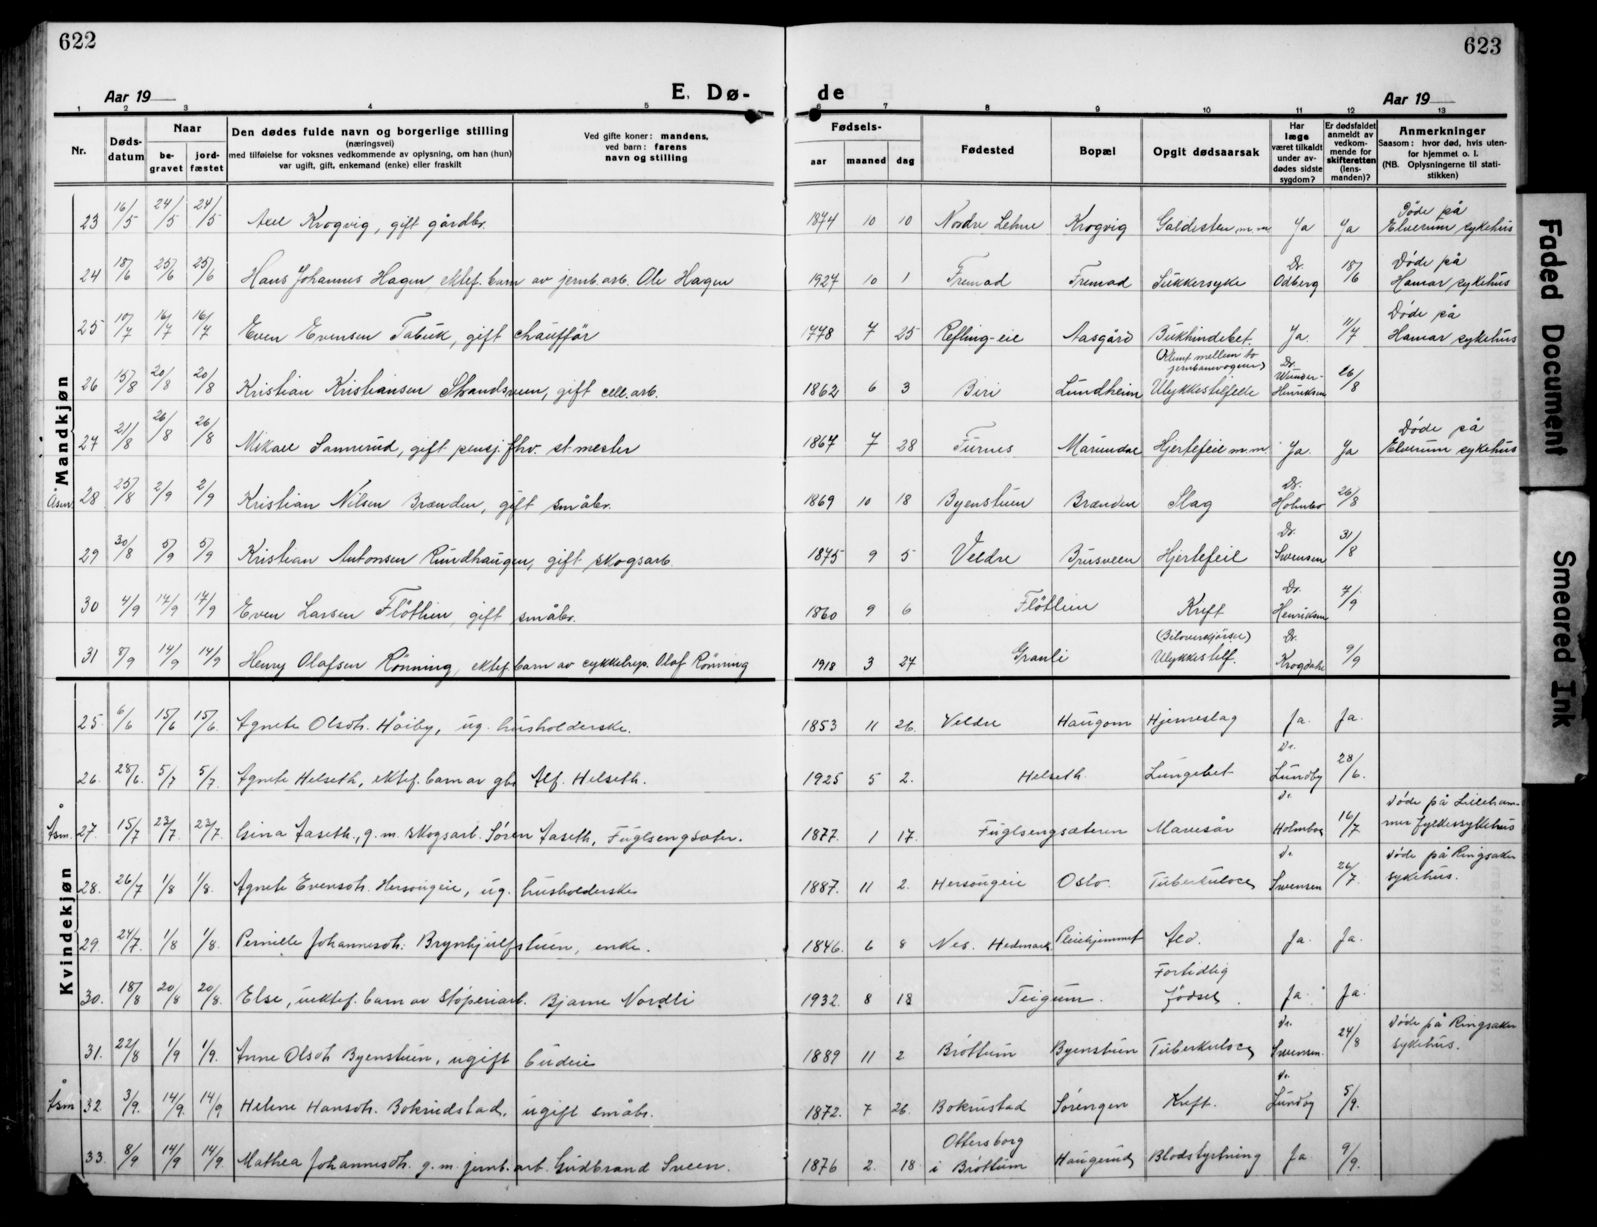 622
623
Aar 19
E. Dø-
de
Aar 19
1 2 3 4 5 6 7 8 9 10 11 12 13
Nr.
Døds-
datum
Naar
be-
gravet
jord-
fæstet
Den dødes fulde navn og borgerlige stilling
(næringsvei)
med tilføielse for voksnes vedkommende av oplysning, om han (hun)
var ugift, gift, enkemand (enke) eller fraskilt
Ved gifte koner: mandens,
ved barn: farens
navn og stilling
Fødsels-
aar maaned dag
Fødested
Bopæl
Opgit dødsaarsak
Har
læge
været tilkaldt
under av-
dødes sidste
sygdom?
Er dødsfaldet
anmeldt av
vedkom-
mende for
skifteretten
(lens-
manden)?
Anmerkninger
Saasom: hvor død, hvis uten-
for hjemmet o. l.
(NB. Oplysningerne til stati-
stikken)
Mandkjøn
23 16/5 24/5 24/5 Axel Krogvig, gift gårdbr. 1874 10 10 Nordre Lehne Krogvig Galdesten m.m Ja Ja Døde på Elverum sykehus
24 18/6 25/6 25/6 Hans Johannes Hagen, ektef. barn av jernb.arb. Ole Hagen 1927 10 1 Fremad Fremad Sukkersyke Dr. Odberg 18/6 Døde på Hamar sykehus
25 10/7 16/7 16/7 Even Evensen Tabuk, gift chauffør 1778 7 25 Refling-eie Aasgård Bukhindebet. Ja. 11/7 Døde på Hamar sykehus
26 15/8 20/8 20/8 Kristian Kristiansen Strandsveen, gift cell.arb. 1862 6 3 Biri Lundheim (Klemt mellem to jernbanevogner) Ulykkestilfelle Dr. Henriksen 26/8
27 21/8 26/8 26/8 Mikael Sannerud, gift pensj. fhv. st.mester 1867 7 28 Furnes Marendal Hjertefeil m.m. Ja. Ja Døde på Elverum sykehus
Åsm. 28 25/8 2/9 2/9 Kristian Nilsen Brænden, gift småbr. 1869 10 18 Byenstuen Brænden Slag Dr. Holmboe 26/8
29 30/8 5/9 5/9 Kristian Antonsen Rundhaugen, gift skogsarb. 1875 9 5 Veldre Bjursveen Hjertefeil Dr. Svensen 31/8
30 4/9 14/9 14/9 Even Larsen Fløtlien, gift småbr. 1860 9 6 Fløtlien Kreft Dr. Henriksen 7/9
31 8/9 14/9 14/9 Henry Olafsen Rønning, ektef. barn av cykkelrep. Olaf Rønning 1918 3 27 Granli (Biloverkjørsel) Ulykkestilf. Dr. Krogdahl 9/9
Kvindekjøn
25. 6/6 15/6 15/6. Agnete Olsdtr. Høiby, ug. husholderske. 1853 11 26. Veldre Haugom Hjerneslag Ja. Ja.
26. 28/6. 5/7 5/7. Agnete Helseth, ektef. barn av gbr. Alf. Helseth. 1925 5 2. Helseth Lungebet. Dr. Lundby 28/6.
Åsm. 27. 15/7 23/7. 23/7. Gina Aaseth, g. m. skogsarb. Søren Aaseth, Fuglsengsæter. 1877. 1 17. Fuglsengsæteren Mavesår Dr. Holmboe 16/7 Døde på Lilleham-
mer fylkessykehus
28. 26/7 1/8 1/8. Agnete Evensdtr. Hersougeie, ug. husholderske 1887. 11 2. Hersougeie Oslo. Tuberkulose Dr. Svensen 26/7. Døde på Ringsaker sykehus.
29. 24/7. 1/8 1/8. Pernille Johannesdtr. Brynhjulfstuen, enke. 1846. 6 8 Nes. Hedmark Pleiehjemmet Ald. Ja. Ja.
30. 18/8 20/8 20/8. Else, uektef. barn av støperiarb. Bjarne Nordli 1932. 8 18 Teigum. Fortidlig fødsel. Ja. Ja.
31. 22/8 1/9 1/9. Anne Olsdtr. Byenstuen, ugift budeie 1889 11 2 Brøttum Byenstuen Tuberkulose Dr. Svensen. 24/8 Døde på Ringsaker sykehus.
Åsm 32. 3/9. 14/9. 14/9 Helene Hansdtr. Bokrudstad, ugift småbr. 1872. 7 26. Bokrustad Sørengen Kreft. Dr. Lundby 5/9.
33. 8/9 14/9 14/9. Mathea Johannesdtr. g. m. jernb.arb. Gudbrand Sveen. 1876 2. 18 Ottersborg i Brøttum Haugerud Blodstyrtning Ja 9/9.
Faded Document
Smeared Ink